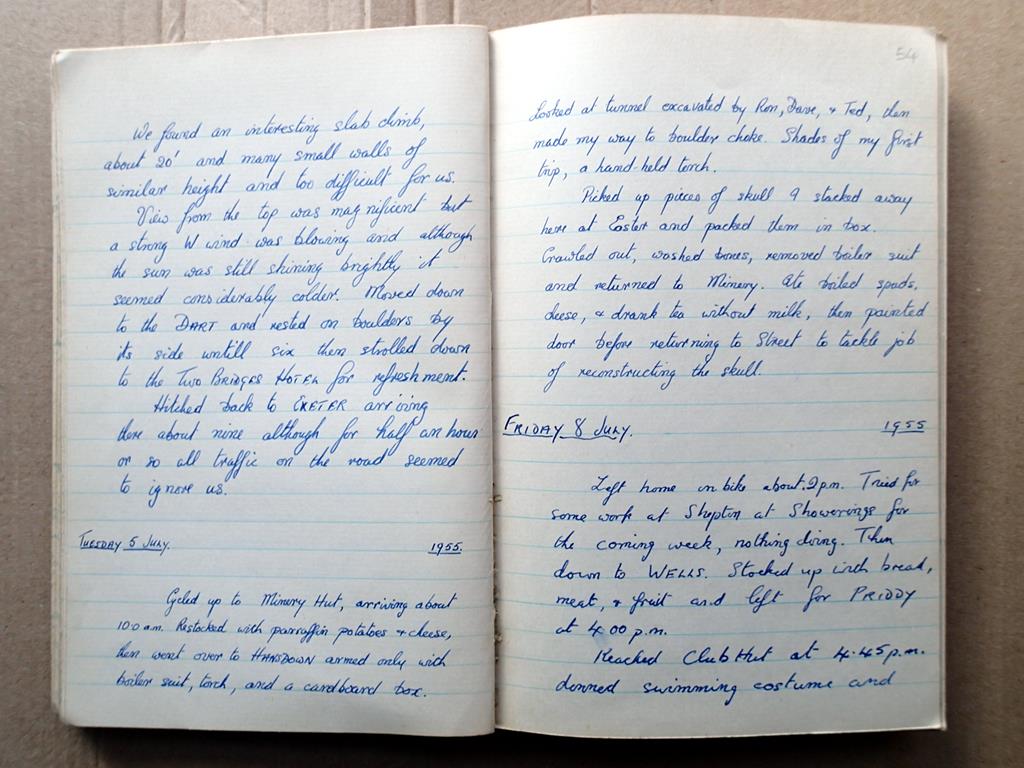 We found an interesting slab climb,
about 20' and many small walls of
similar height and too difficult for us.
View from the top was magnificent but
a strong W wind was blowing and although
the sun was still shining brightly it
seemed considerably colder. Moved down
to the DART and rested on boulders by
its side untill six then strolled down
to the TWO BRIDGES HOTEL for refreshment.
Hitched back to EXETER arriving
there about nine although for half an hour
or so all traffic on the road seemed
to ignore us.
TUESDAY 5 JULY. 1955.
Cycled up to Minery Hut, arriving about
10.0 am. Restocked with parraffin potatoes + cheese,
then went over to HANSDOWN armed only with
boiler suit, torch, and a cardboard box.
54
Looked at tunnel excavated by Ron, Dave, + Ted, then
made my way to boulder choke. Shades of my first
trip, a hand-held torch.
Picked up pieces of skull I stacked away
here at Easter and packed them in box.
Crawled out, washed bones, removed boiler suit
and returned to Minery. Ate boiled spuds,
cheese, + drank tea without milk, then painted
door before returning to Street to tackle job
of reconstructing the skull.
FRIDAY 8 JULY. 1955
Left home on bike about 2 p.m. Tried for
some work at Shepton at Showerings for
the coming week, nothing doing. Then
down to WELLS. Stocked up with bread,
meat, + fruit and left for PRIDDY
at 4 00 p.m.
Reached Club Hut at 4.45 p.m.
donned swimming costume and